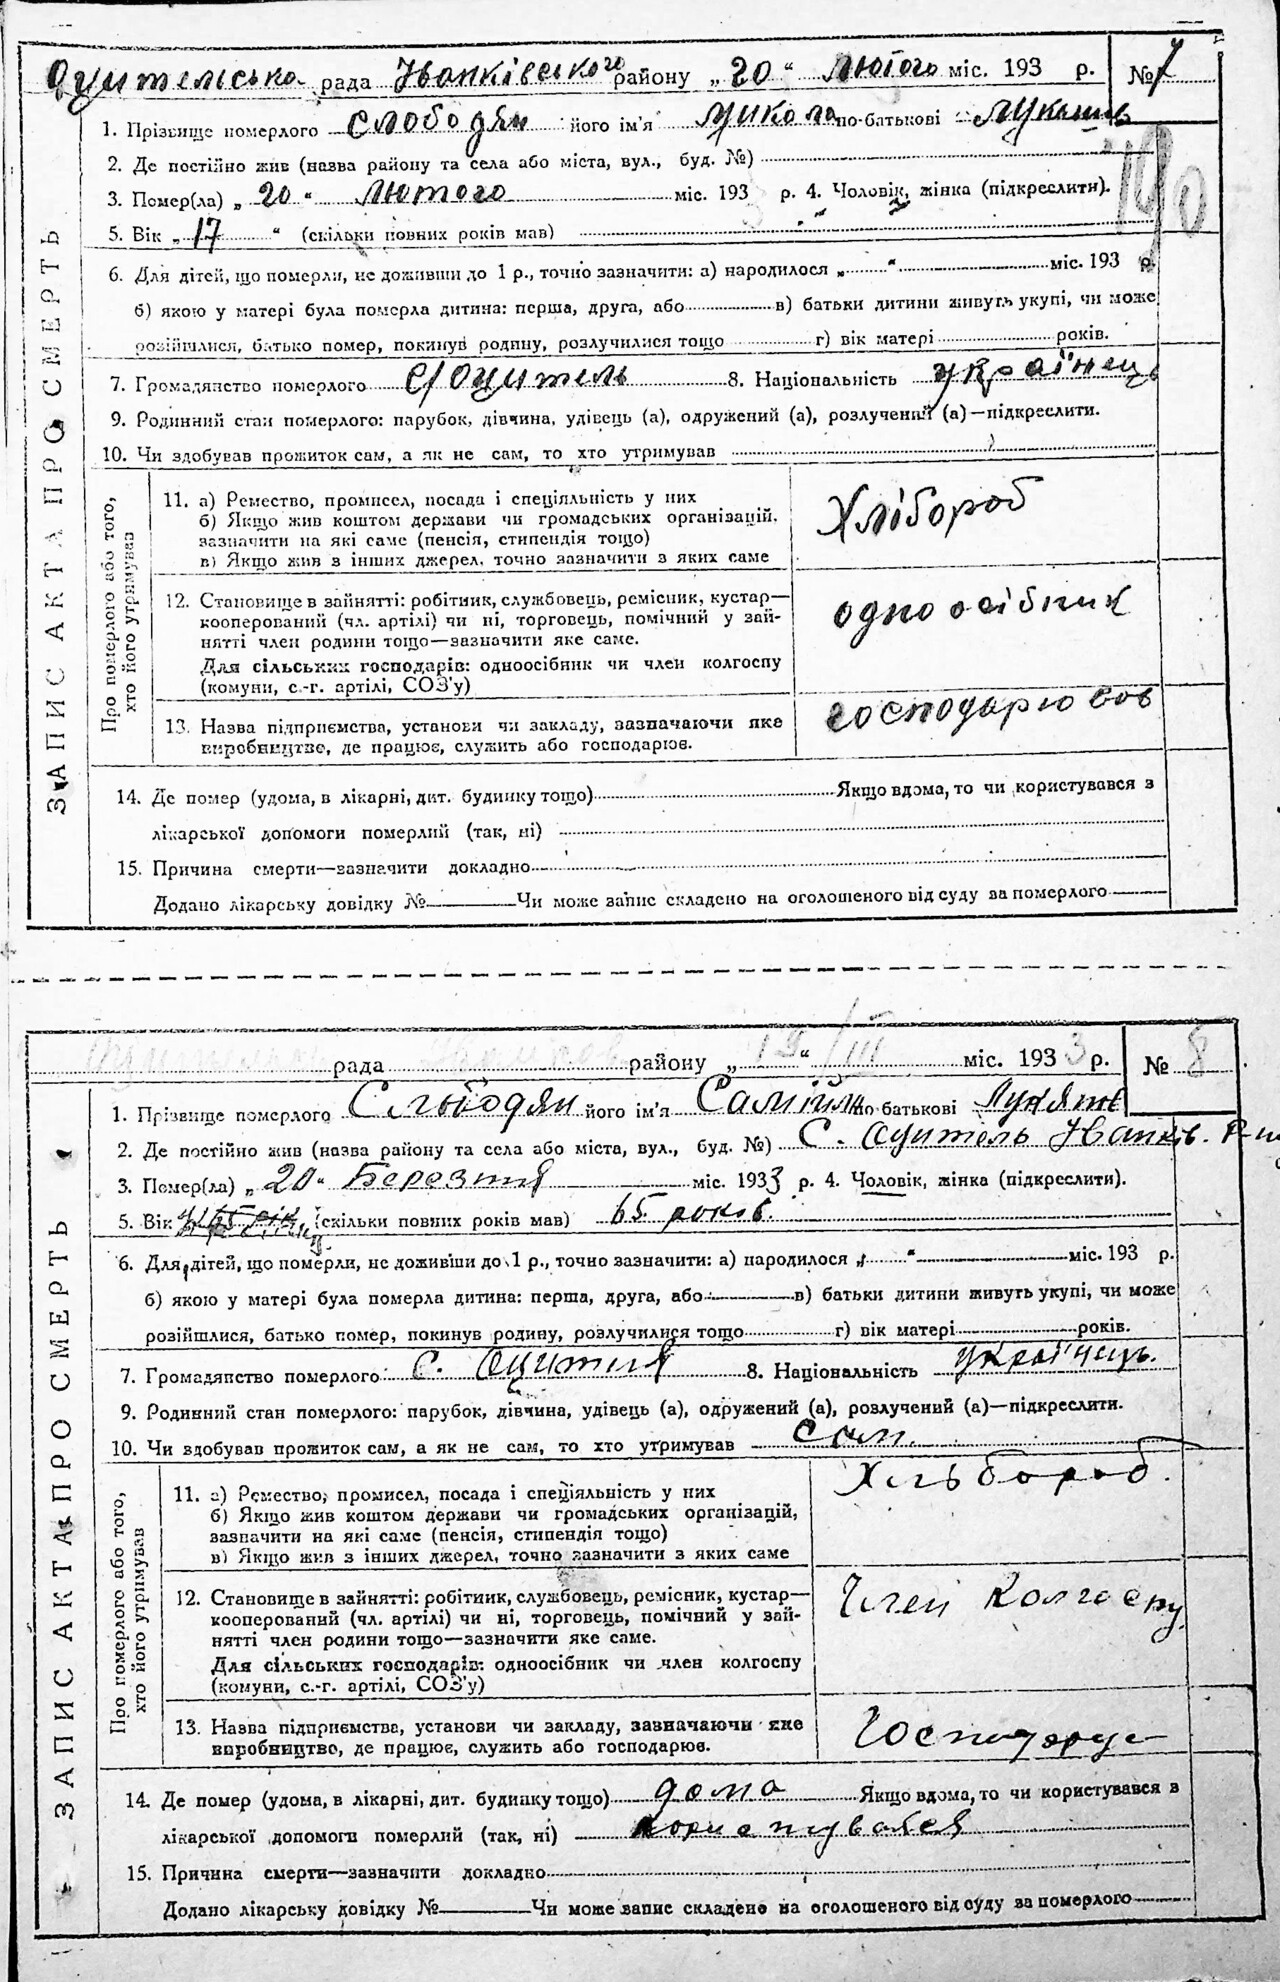 Оцительська рада Іванківського району „20“ лютого міс. 193 р. №7
1. Прізвище померлого Слободян його ім'я Микола по-батькові
2. Де постійно жив (назва району та села або міста, вул., буд. №)
3. Помер(ла) „20“ лютого міс. 193 р. 4. Чоловік, жінка (підкреслити).
5. Вік „17“ (скільки повних років мав)
6. Для дітей, що померли, не доживши до 1 р., точно зазначити: а) народилося „ “ міс. 193 р.
б) якою у матері була померла дитина: перша, друга, або в) батьки дитини живуть укупі, чи може
розійшлися, батько помер, покинув родину, розлучилися тощо г) вік матері років.
7. Громадянство померлого с/Оцитель 8. Національність українець
9. Родинний стан померлого: парубок, дівчина, удівець (а), одружений (а), розлучений (а)—підкреслити.
10. Чи здобував прожиток сам, а як не сам, то хто утримував
ЗАПИС АКТА ПРО СМЕРТЬ
Про померлого або того,
хто його утримував
11. а) Ремество, промисел, посада і спеціяльність у них
б) Якщо жив коштом держави чи громадських організацій,
зазначити на які саме (пенсія, стипендія тощо)
в) Якщо жив з інших джерел, точно зазначити з яких саме
Хлібороб
12. Становище в зайнятті: робітник, службовець, ремісник, кустар—
кооперований (чл. артілі) чи ні, торговець, помічний у зай-
нятті член родини тощо—зазначити яке саме.
Для сільських господарів: одноосібник чи член колгоспу
(комуни, с.-г. артілі, СОЗ'у)
одноосібник
13. Назва підприємства, установи чи закладу, зазначаючи яке
виробництво, де працює, служить або господарює.
господарював
14. Де помер (удома, в лікарні, дит. будинку тощо) Якщо вдома, то чи користувався з
лікарської допомоги померлий (так, ні)
15. Причина смерти—зазначити докладно
Додано лікарську довідку № Чи може запис складено на оголошеного від суду за померлого
рада району „19“ III міс. 1933 р. № 8
1. Прізвище померлого Слободян його ім'я Самійло по батькові
2. Де постійно жив (назва району та села або міста, вул., буд. №) С. Оцитель Іванків.
3. Помер(ла) „20“ Березня міс. 1933 р. 4. Чоловік, жінка (підкреслити).
5. Вік (скільки повних років мав) 65 років.
6. Для дітей, що померли, не доживши до 1 р., точно зазначити: а) народилося „ “ міс. 193 р.
б) якою у матері була померла дитина: перша, друга, або в) батьки дитини живуть укупі, чи може
розійшлися, батько помер, покинув родину, розлучилися тощо г) вік матері років.
7. Громадянство померлого с. 8. Національність українець.
9. Родинний стан померлого: парубок, дівчина, удівець (а), одружений (а), розлучений (а)—підкреслити.
10. Чи здобував прожиток сам, а як не сам, то хто утримував сам.
ЗАПИС АКТА ПРО СМЕРТЬ
Про померлого або того,
хто його утримував
11. а) Ремество, промисел, посада і спеціяльність у них
б) Якщо жив коштом держави чи громадських організацій,
зазначити на які саме (пенсія, стипендія тощо)
в) Якщо жив з інших джерел, точно зазначити з яких саме
Хльбороб.
12. Становище в зайнятті: робітник, службовець, ремісник, кустар—
кооперований (чл. артілі) чи ні, торговець, помічний у зай-
нятті член родини тощо—зазначити яке саме.
Для сільських господарів: одноосібник чи член колгоспу
(комуни, с.-г. артілі, СОЗ'у)
Член колгоспу.
13. Назва підприємства, установи чи закладу, зазначаючи яке
виробництво, де працює, служить або господарює.
Господарує
14. Де помер (удома, в лікарні, дит. будинку тощо) дома Якщо вдома, то чи користувався з
лікарської допомоги померлий (так, ні) користувався
15. Причина смерти—зазначити докладно
Додано лікарську довідку № Чи може запис складено на оголошеного від суду за померлого